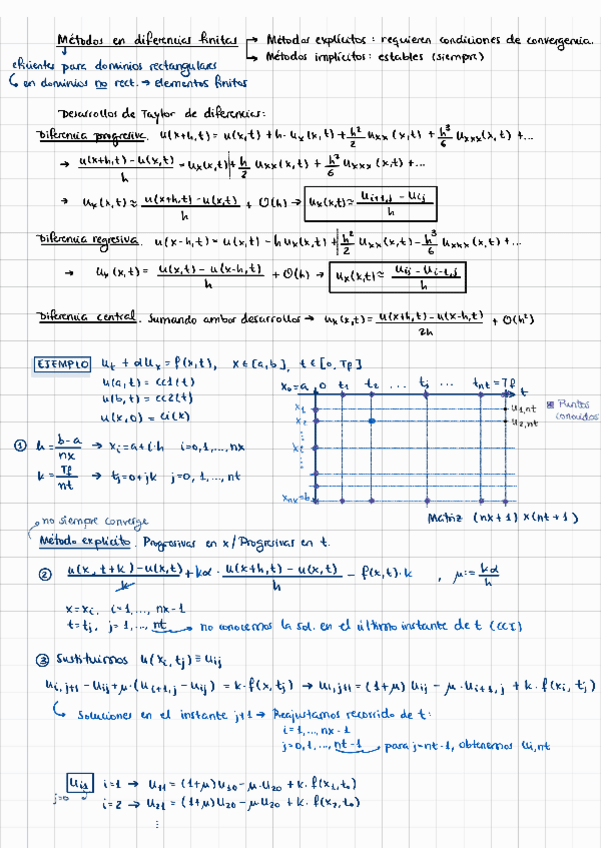 Métodos en diferencias finitas → Métodos explícitos: requieren condiciones de convergencia.
→ Métodos implícitos: estables (siempre)
eficientes para dominios rectangulares
↳ en dominios no rect. → elementos finitos
Desarrollos de Taylor de diferencias:
Diferencia progresiva. u(x+h,t) = u(x,t) + h·u_x(x,t) + h²/2 u_xx(x,t) + h³/6 u_xxx(x,t) + ...
→ (u(x+h,t) - u(x,t))/h = u_x(x,t) + h/2 u_xx(x,t) + h²/6 u_xxx(x,t) + ...
→ u_x(x,t) ≈ (u(x+h,t) - u(x,t))/h + O(h) → u_x(x,t) ≈ (u_{i+1,j} - u_ij)/h
Diferencia regresiva. u(x-h,t) = u(x,t) - h u_x(x,t) + h²/2 u_xx(x,t) - h³/6 u_xxx(x,t) + ...
→ u_x(x,t) = (u(x,t) - u(x-h,t))/h + O(h) → u_x(x,t) ≈ (u_ij - u_{i-1,j})/h
Diferencia central. Sumando ambos desarrollos → u_x(x,t) = (u(x+h,t) - u(x-h,t))/2h + O(h²)
EJEMPLO u_t + αu_x = f(x,t), x∈[a,b], t∈[0,Tf]
u(a,t) = cc1(t)
u(b,t) = cc2(t)
u(x,0) = ci(x)
x₀=a 0 t₁ t₂ ... t_j ... t_nt=Tf
t
x₁ u_1,nt
x₂ u_2,nt
x_i
x_nx=b
Puntos conocidos
① h = (b-a)/nx → x_i = a+i·h i=0,1,...,nx
k = Tf/nt → t_j = 0+jk j=0,1,...,nt
Matriz (nx+1)×(nt+1)
no siempre converge
Método explícito. Progresivas en x/Progresivas en t.
② (u(x,t+k) - u(x,t))/k + kα·(u(x+h,t) - u(x,t))/h = f(x,t)·k , μ := kα/h
x=x_i, i=1,...,nx-1
t=t_j, j=1,...,nt → no conocemos la sol. en el último instante de t (CCI)
③ Sustituimos u(x_i,t_j) ≡ u_ij
u_i,j+1 - u_ij + μ·(u_{i+1,j} - u_ij) = k·f(x_i,t_j) → u_i,j+1 = (1+μ)u_ij - μ·u_{i+1,j} + k·f(x_i,t_j)
↳ Soluciones en el instante j+1 → Reajustamos recorrido de t:
i=1,...,nx-1
j=0,1,...,nt-1 → para j=nt-1, obtenemos u_i,nt
u_i1 i=1 → u₁₁ = (1+μ)u₁₀ - μ·u₂₀ + k·f(x₁,t₀)
j=0 i=2 → u₂₁ = (1+μ)u₂₀ - μu₂₀ + k·f(x₂,t₀)
⋮